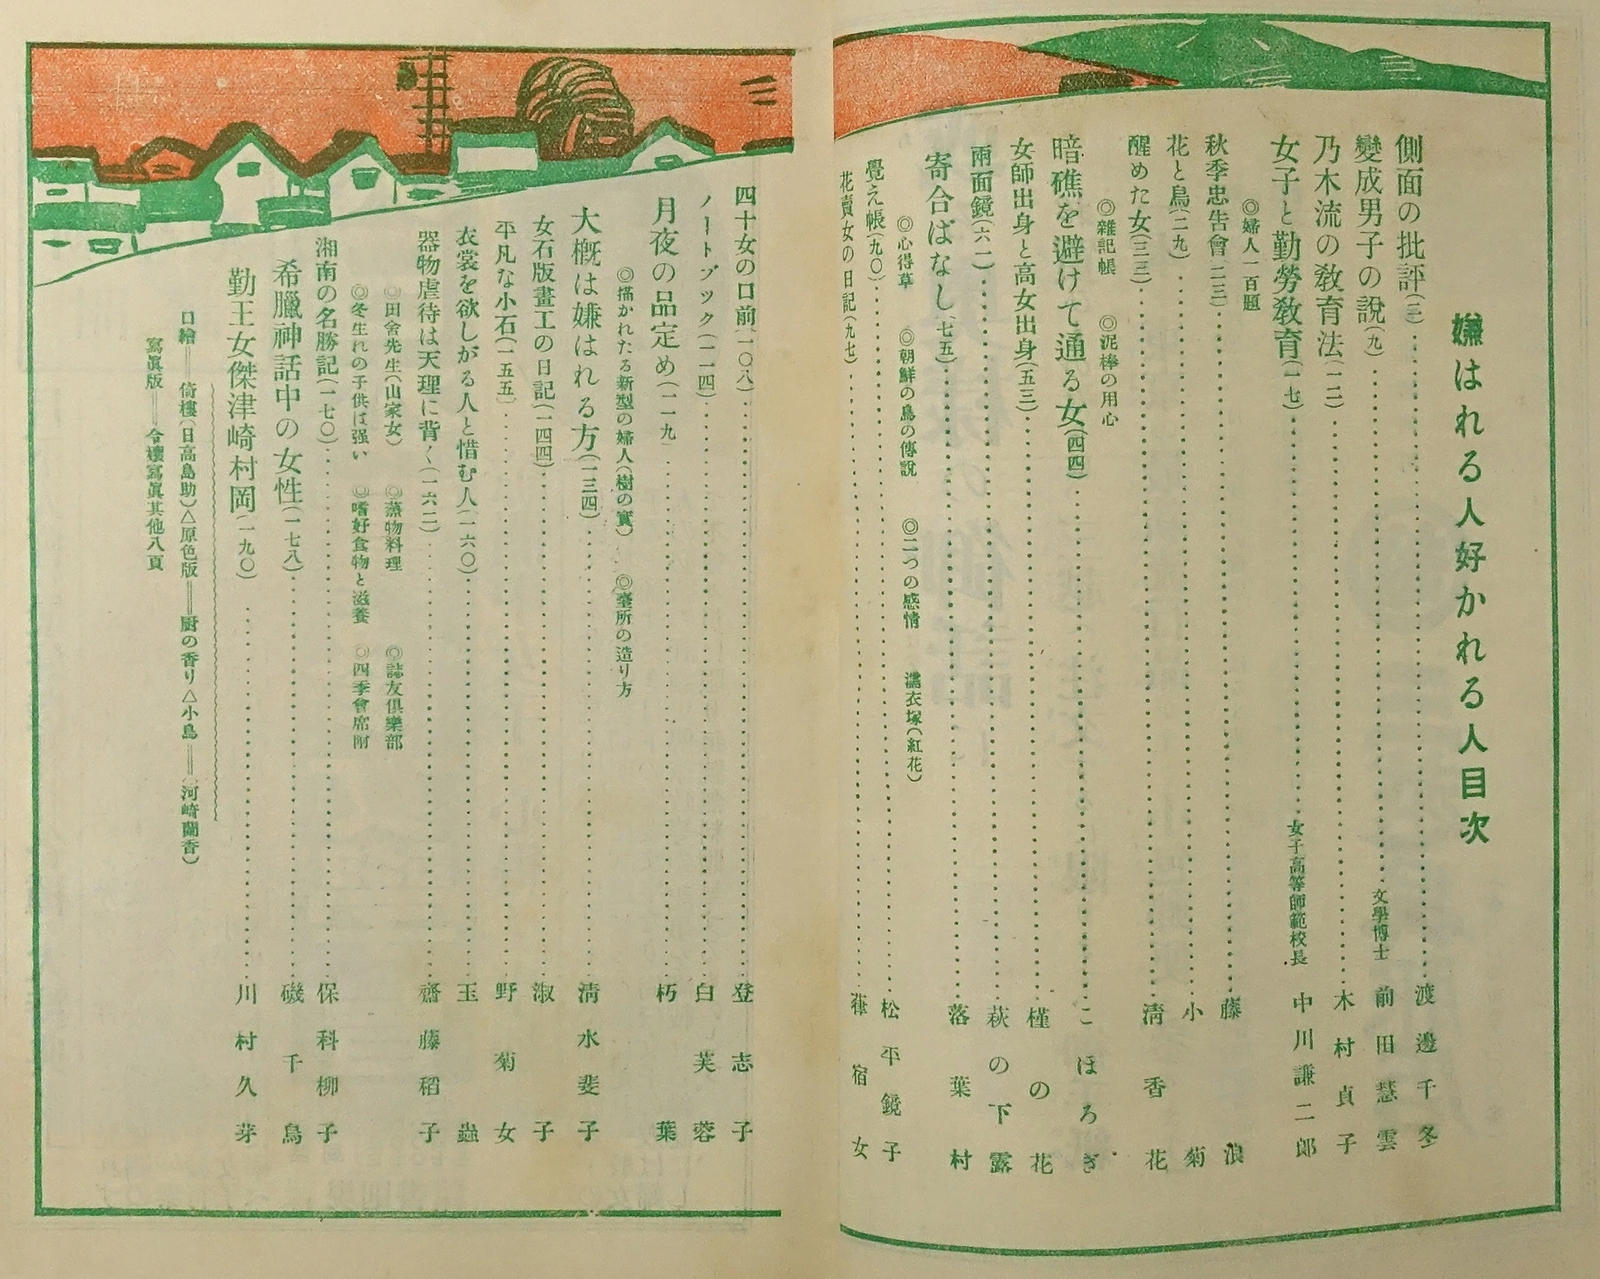 嫌はれる人好かれる人目次
側面の批評(三)……渡邊千冬
變成男子の說(九)……文學博士 前田慧雲
乃木流の敎育法(一二)……木村貞子
女子と勤勞敎育(一七)……女子高等師範校長 中川謙二郎
◎婦人一百題
秋季忠告會(二三)……藤浪
花と鳥(二九)……小菊
醒めた女(三三)……淸香花
◎雜記帳 ◎泥棒の用心
暗礁を避けて通る女(四四)……こほろぎ
女師出身と高女出身(五三)……槿の花
兩面鏡(六一)……萩の下露
寄合ばなし(七五)……落葉村
◎心得草 ◎朝鮮の鳥の傳說 ◎二つの感情 濡衣塚(紅花)
覺え帳(九〇)……松平鏡子
花賣女の日記(九七)……宿女
四十女の口前(一〇八)……登志子
ノートブック(一一四)……白芙蓉
月夜の品定め(一一九)……朽葉
◎描かれたる新型の婦人(樹の實) ◎臺所の造り方
大槪は嫌はれる方(一三四)……淸水斐子
女石版畫工の日記(一四四)……淑子
平凡な小石(一五五)……野菊女
衣裳を欲しがる人と惜む人(一六〇)……玉蟲
器物虐待は天理に背く(一六二)……齋藤稻子
◎田舍先生(山家女) ◎蒸物料理 ◎誌友俱樂部
◎冬生れの子供は强い ◎嗜好食物と滋養 ◎四季會席附
湘南の名勝記(一七〇)……保科柳子
希臘神話中の女性(一七八)……磯千鳥
勤王女傑津崎村岡(一九〇)……川村久芽
口繪══倚樓(日高島助)△原色版══厨の香り△小鳥══(河崎蘭香)
寫眞版══令孃寫眞其他八頁